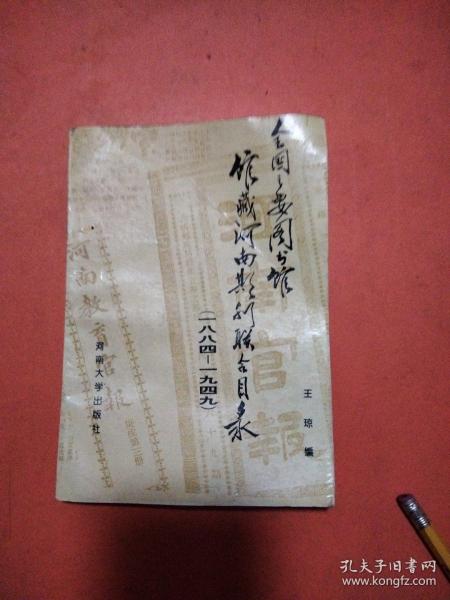 全国主要图书馆
馆藏河南期刊联合目录
(一八八四—一九四九)
王琼编
河南大学出版社
河南教育官报
官报
孔夫子旧书网
www.kongfz.com